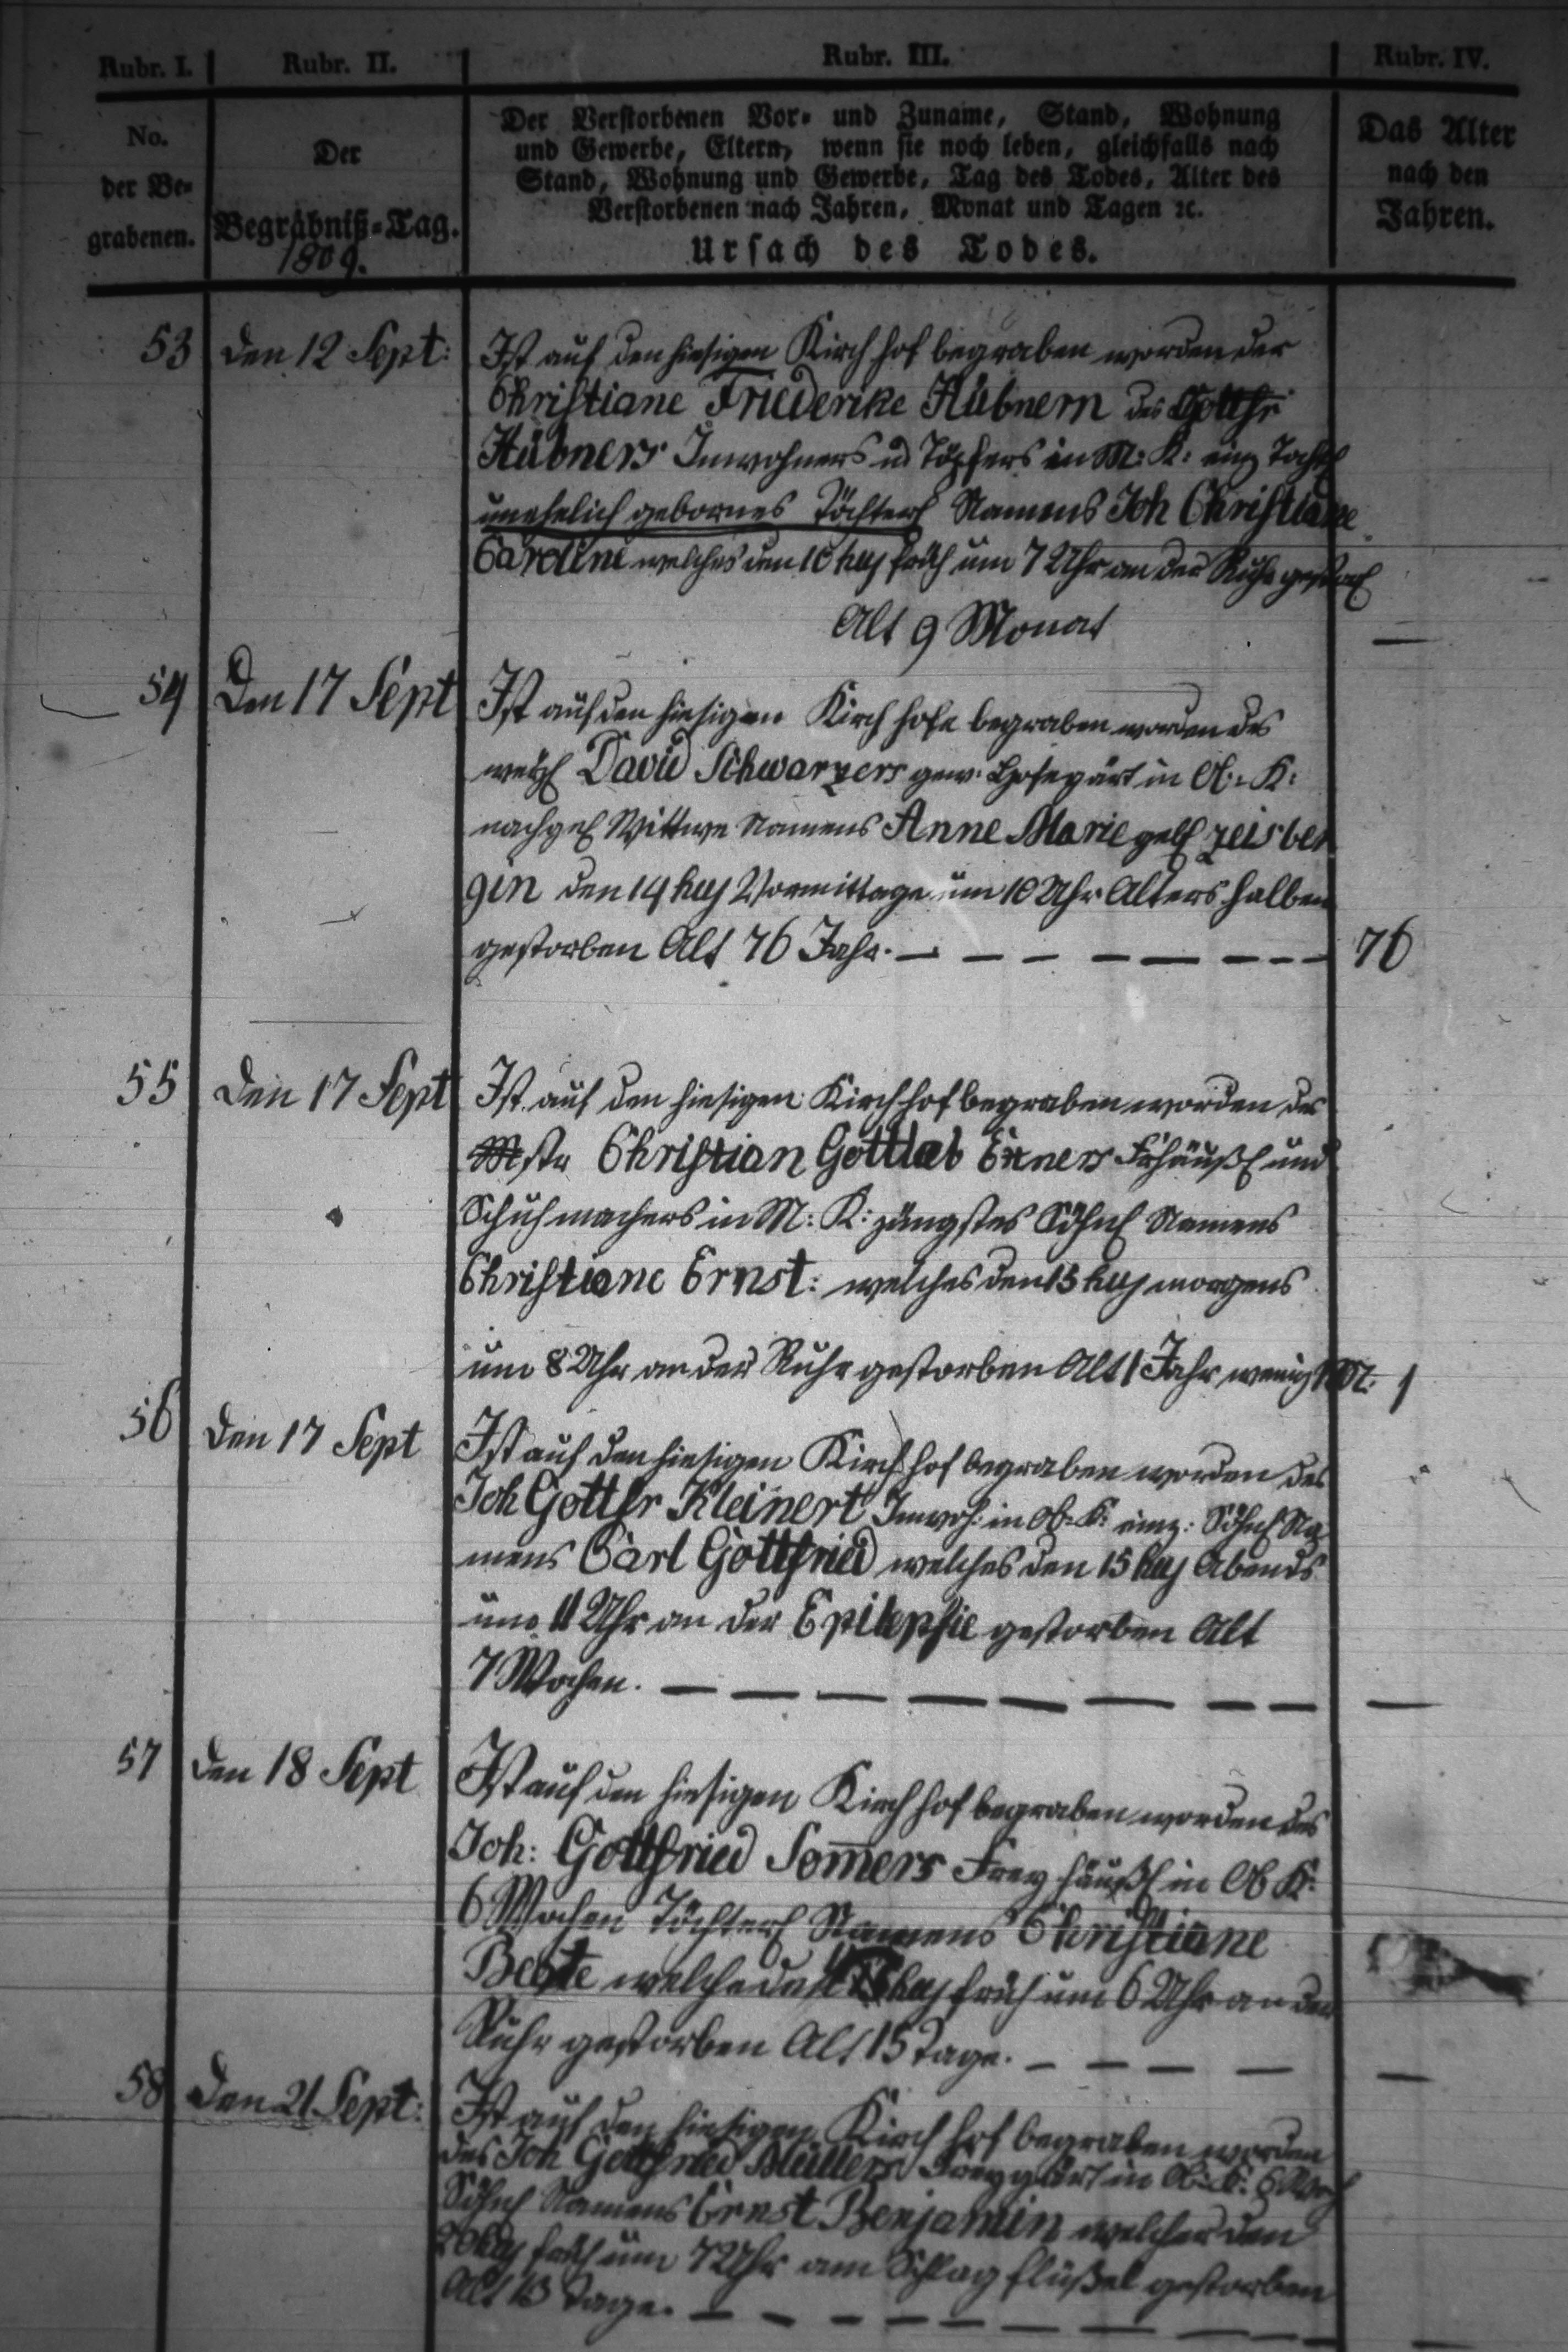 Rubr. I. Rubr. II. Rubr. III. Rubr. IV.
No.
der Be=
grabenen.
Der
Begräbniß=Tag.
1809.
Der Verstorbenen Vor= und Zuname, Stand, Wohnung
und Gewerbe, Eltern, wenn sie noch leben, gleichfalls nach
Stand, Wohnung und Gewerbe, Tag des Todes, Alter des
Verstorbenen nach Jahren, Monat und Tagen ꝛc.
Ursach des Todes.
Das Alter
nach den
Jahren.
53 den 12 Sept: Ist auf den hiesigen Kirchhof begraben worden der
Christiane Friederike Hübnern des Gottfr
Hübners Inwohners u Töpfers in M: K: Tocht
unehelich gebornes Töchterl Namens Joh Christiane
Caroline welches den 10 huj früh um 7 Uhr an der Ruhr gestorb
Alt 9 Monat —
54 Den 17 Sept Ist auf den hiesigen Kirchhofe begraben worden des
weyl David Schwarzers gew: Hofegärt in O: K:
nachgel Wittwe Namens Anne Marie geb Zeisber
gin den 14 huj Vormittage um 10 Uhr Alters halben
gestorben Alt 76 Jahr. — — — — — — — — 76
55 den 17 Sept Ist auf den hiesigen Kirchhof begraben worden des
Mstr Christian Gottlieb Exners Frhäußl und
Schuhmachers in M: K: jüngstes Söhnl Namens
Christiane Ernst: welches den 15 huj morgens
um 8 Uhr an der Ruhr gestorben Alt 1 Jahr wenig 1 M: 1
56 den 17 Sept Ist auf den hiesigen Kirchhof begraben worden des
Joh Gottfr Kleinert Inwoh: in Ob: K: einz: Söhnl Na
mens Carl Gottfried welches den 15 huj Abends
um 11 Uhr an der Epilepsie gestorben Alt
7 Wochen. — — — — — — — — —
57 den 18 Sept Ist auf den hiesigen Kirchhof begraben worden des
Joh: Gottfried Som̅ers Freyhäußl in Ob K:
6 Wochen Töchterl Namens Christiane
Beate welche den huj früh um 6 Uhr an der
Ruhr gestorben Alt 15 Tage. — — — — —
58 den 21 Sept: Ist auf den hiesigen Kirchhof begraben worden
des Joh Gottfried Müllers Freygärt in Ob: K: 6 Woch
Söhnl Namens Ernst Benjamin welcher den
20 huj früh um 7 Uhr am Schlagflüßel gestorben
Alt 13 Tage. — — — — — — — —